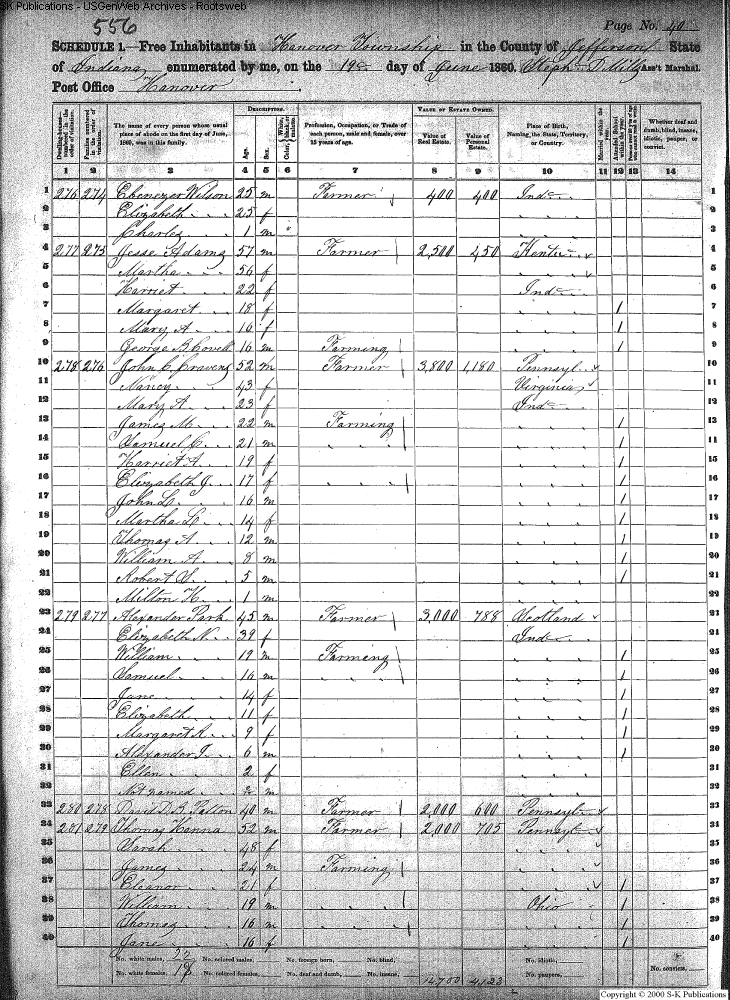 S-K Publications - USGenWeb Archives - Rootsweb
556
Page No. 40
SCHEDULE 1.—Free Inhabitants in Hanover Township in the County of Jefferson State
of Indiana enumerated by me, on the 19 day of June 1860. Steph. D. Ass't Marshal.
Post Office Hanover
DESCRIPTION. VALUE OF ESTATE OWNED.
The name of every person whose usual place of abode on the first day of June, 1860, was in this family.
Age. Sex.
Profession, Occupation, or Trade of each person, male and female, over 15 years of age.
Value of Real Estate. Value of Personal Estate.
Place of Birth, Naming the State, Territory, or Country.
Whether deaf and dumb, blind, insane, idiotic, pauper, or convict.
1 2 3 4 5 6 7 8 9 10 11 12 13 14
1 276 274 Ebenezer Wilson 25 m Farmer 400 400 Ind 1
2 Elizabeth 25 f 2
3 Charles 1 m 3
4 277 275 Jesse Adams 57 m Farmer 2,500 450 Kentu 4
5 Martha 56 f 5
6 Harriet 22 f Ind 6
7 Margaret 18 f 1 7
8 Mary A. 16 f 1 8
9 George B. Covell 16 m Farming 1 9
10 278 276 John C. Cravens 52 m Farmer 3,800 1,180 Pennsyl 10
11 Nancy 43 f Virginia 11
12 Mary A. 23 f Ind 12
13 James M. 22 m Farming 1 13
14 Samuel C. 21 m 1
15 Harriet A. 19 f 1 15
16 Elizabeth J. 17 f 1 16
17 John L. 16 m 1 17
18 Martha L. 14 f 1 18
19 Thomas A. 12 m 1 19
20 William A. 8 m 1 20
21 Robert S. 5 m 1 21
Milton H. 1 m
23 279 277 Alexander Park 45 m Farmer 3,000 788 Scotland
24 Elizabeth N. 39 f Ind
25 William 19 m Farming 1 25
26 Samuel 16 m 1 26
27 Jane 14 f 1 27
28 Elizabeth 11 f 1 28
29 Margaret K. 9 f 1 29
30 Alexander J. 6 m 1 30
Ellen 2 f
Not named m
33 280 278 David D. B. Patton 40 m Farmer 2,000 600 Pennsyl
34 281 279 Thomas Hanna 52 m Farmer 2,000 705 Pennsyl
35 Sarah 48 f 35
36 James 24 m Farming 36
37 Eleanor 21 f 1 37
38 William 19 m Ohio 1 38
39 Thomas 16 m 1 39
40 Jane 16 f 1 40
No. white males, 22 No. colored males, No. foreign born, No. blind, No. idiotic,
No. white females, 18 No. colored females, No. deaf and dumb, No. insane, 14700 4123 No. paupers, No. convicts,
Copyright © 2000 S-K Publications